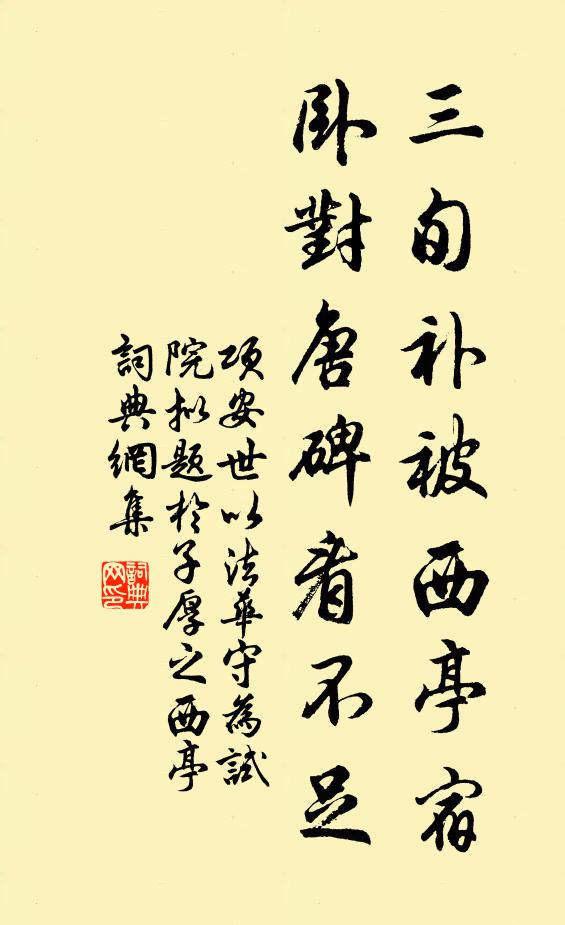 三旬补被西亭宿
卧對唐碑看不足
項安世以法華守為試
院拟題於子厚之西亭
詞典網集
詞典
网印